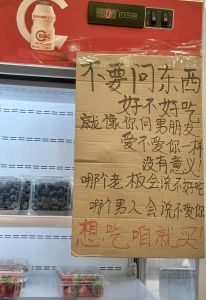 不要问东西
好不好吃
就像你问男朋友
爱不爱你一样
没有意义!
哪个老板会说不好吃
哪个男人会说不爱你
想吃咱就买!